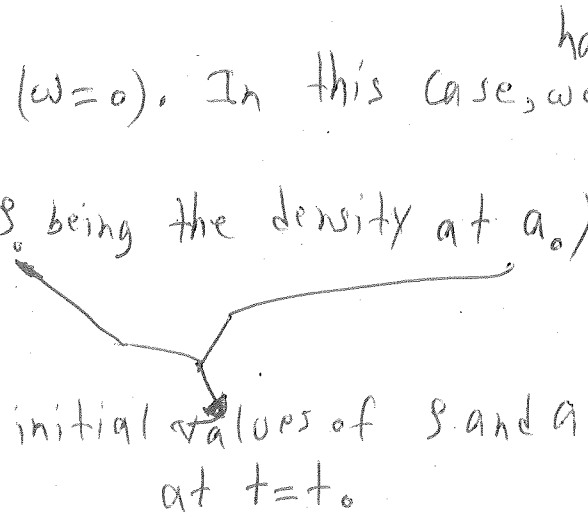 (ω=0). In this case, we
ρ₀ being the density at a₀)
initial values of ρ and a
at t=t₀